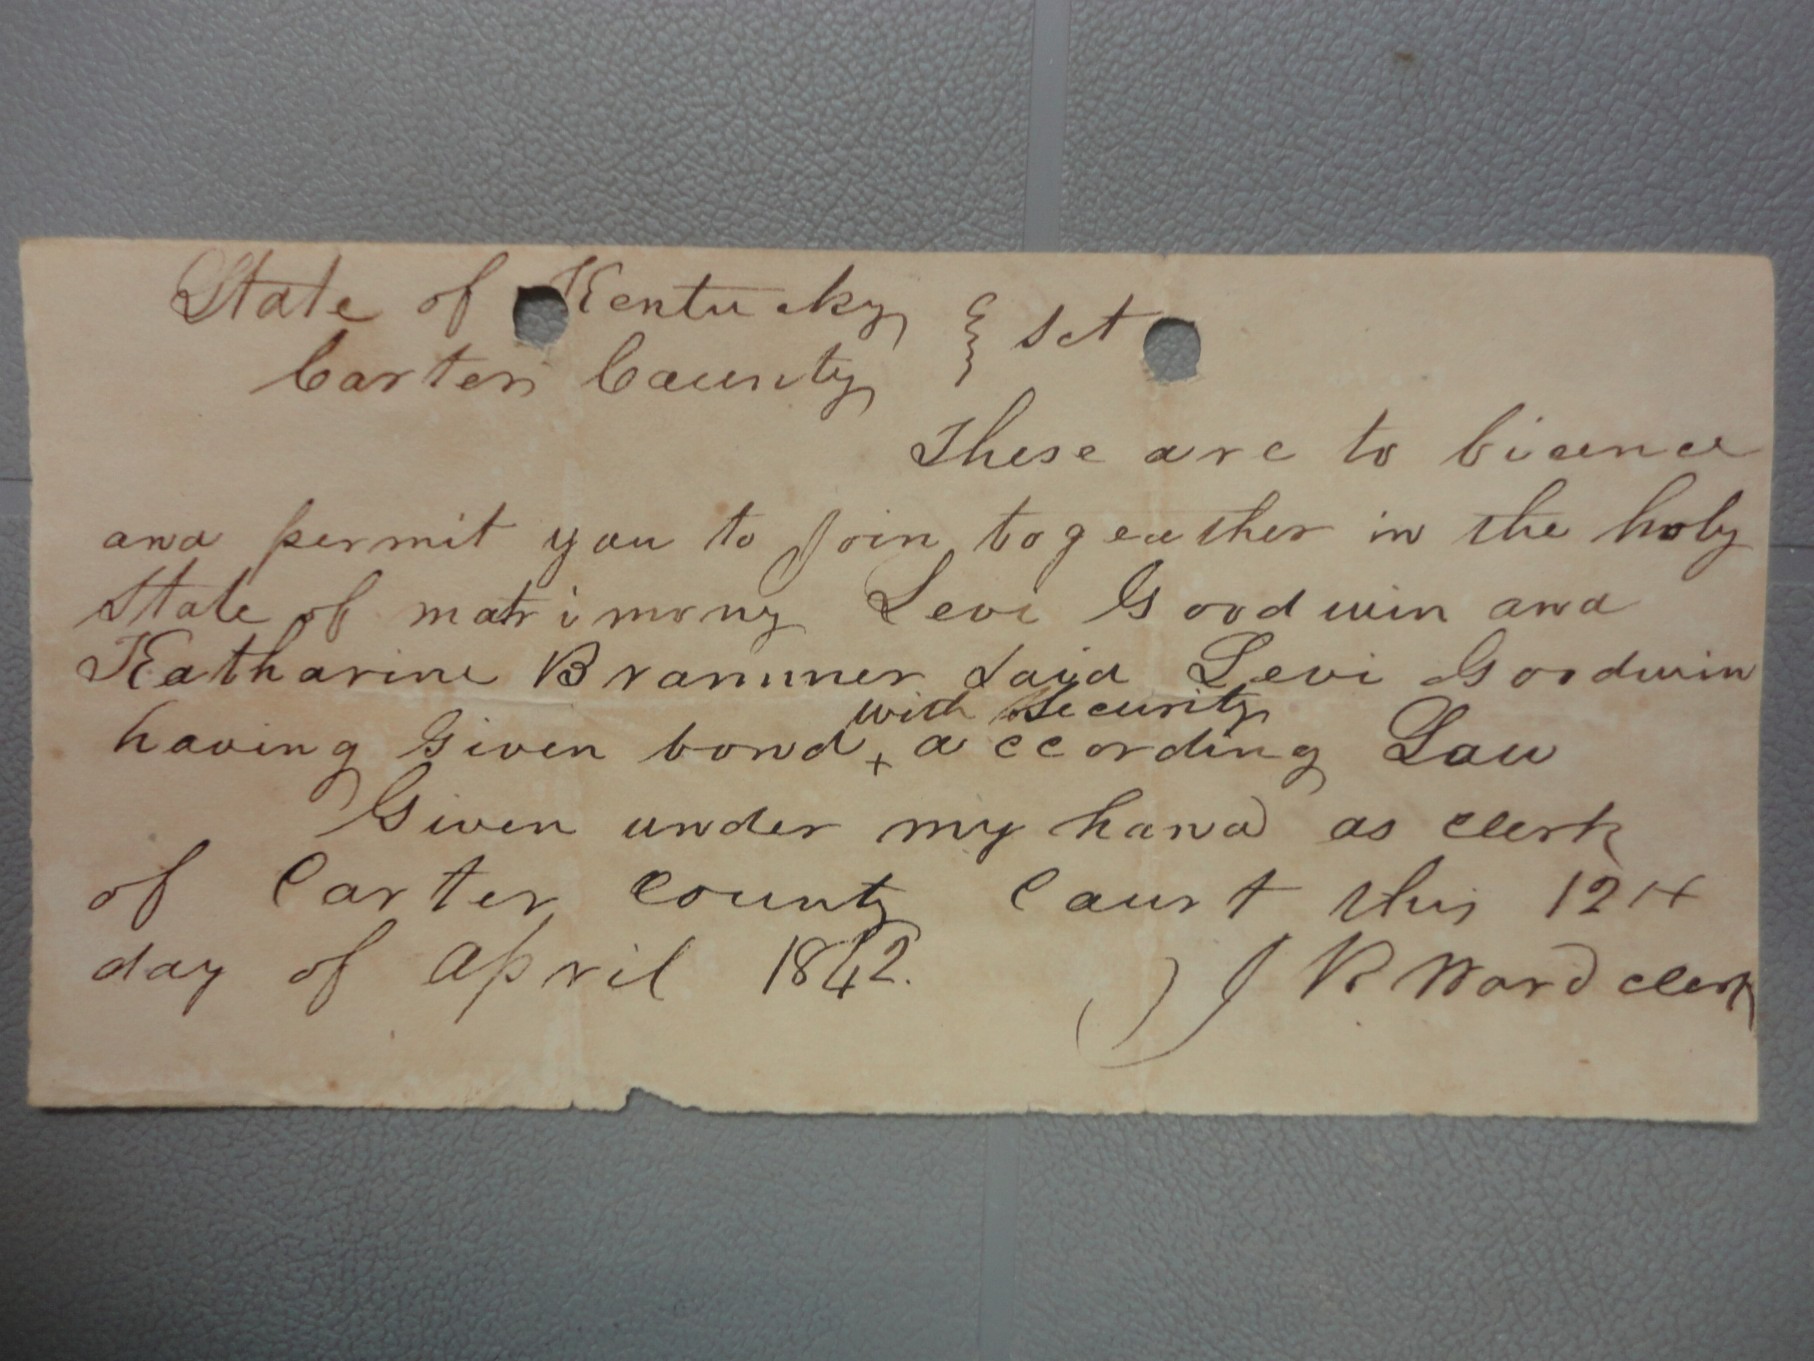 State of Kentucky } Sct
Carter County
These are to licence
and permit you to Join togeather in the holy
State of matrimony Levi Goodwin and
Katharine Brammer Said Levi Goodwin
with Security
having Given bond + according Law
Given under my hand as clerk
of Carter County Court this 12th
day of April 1842. J R Ward clerk